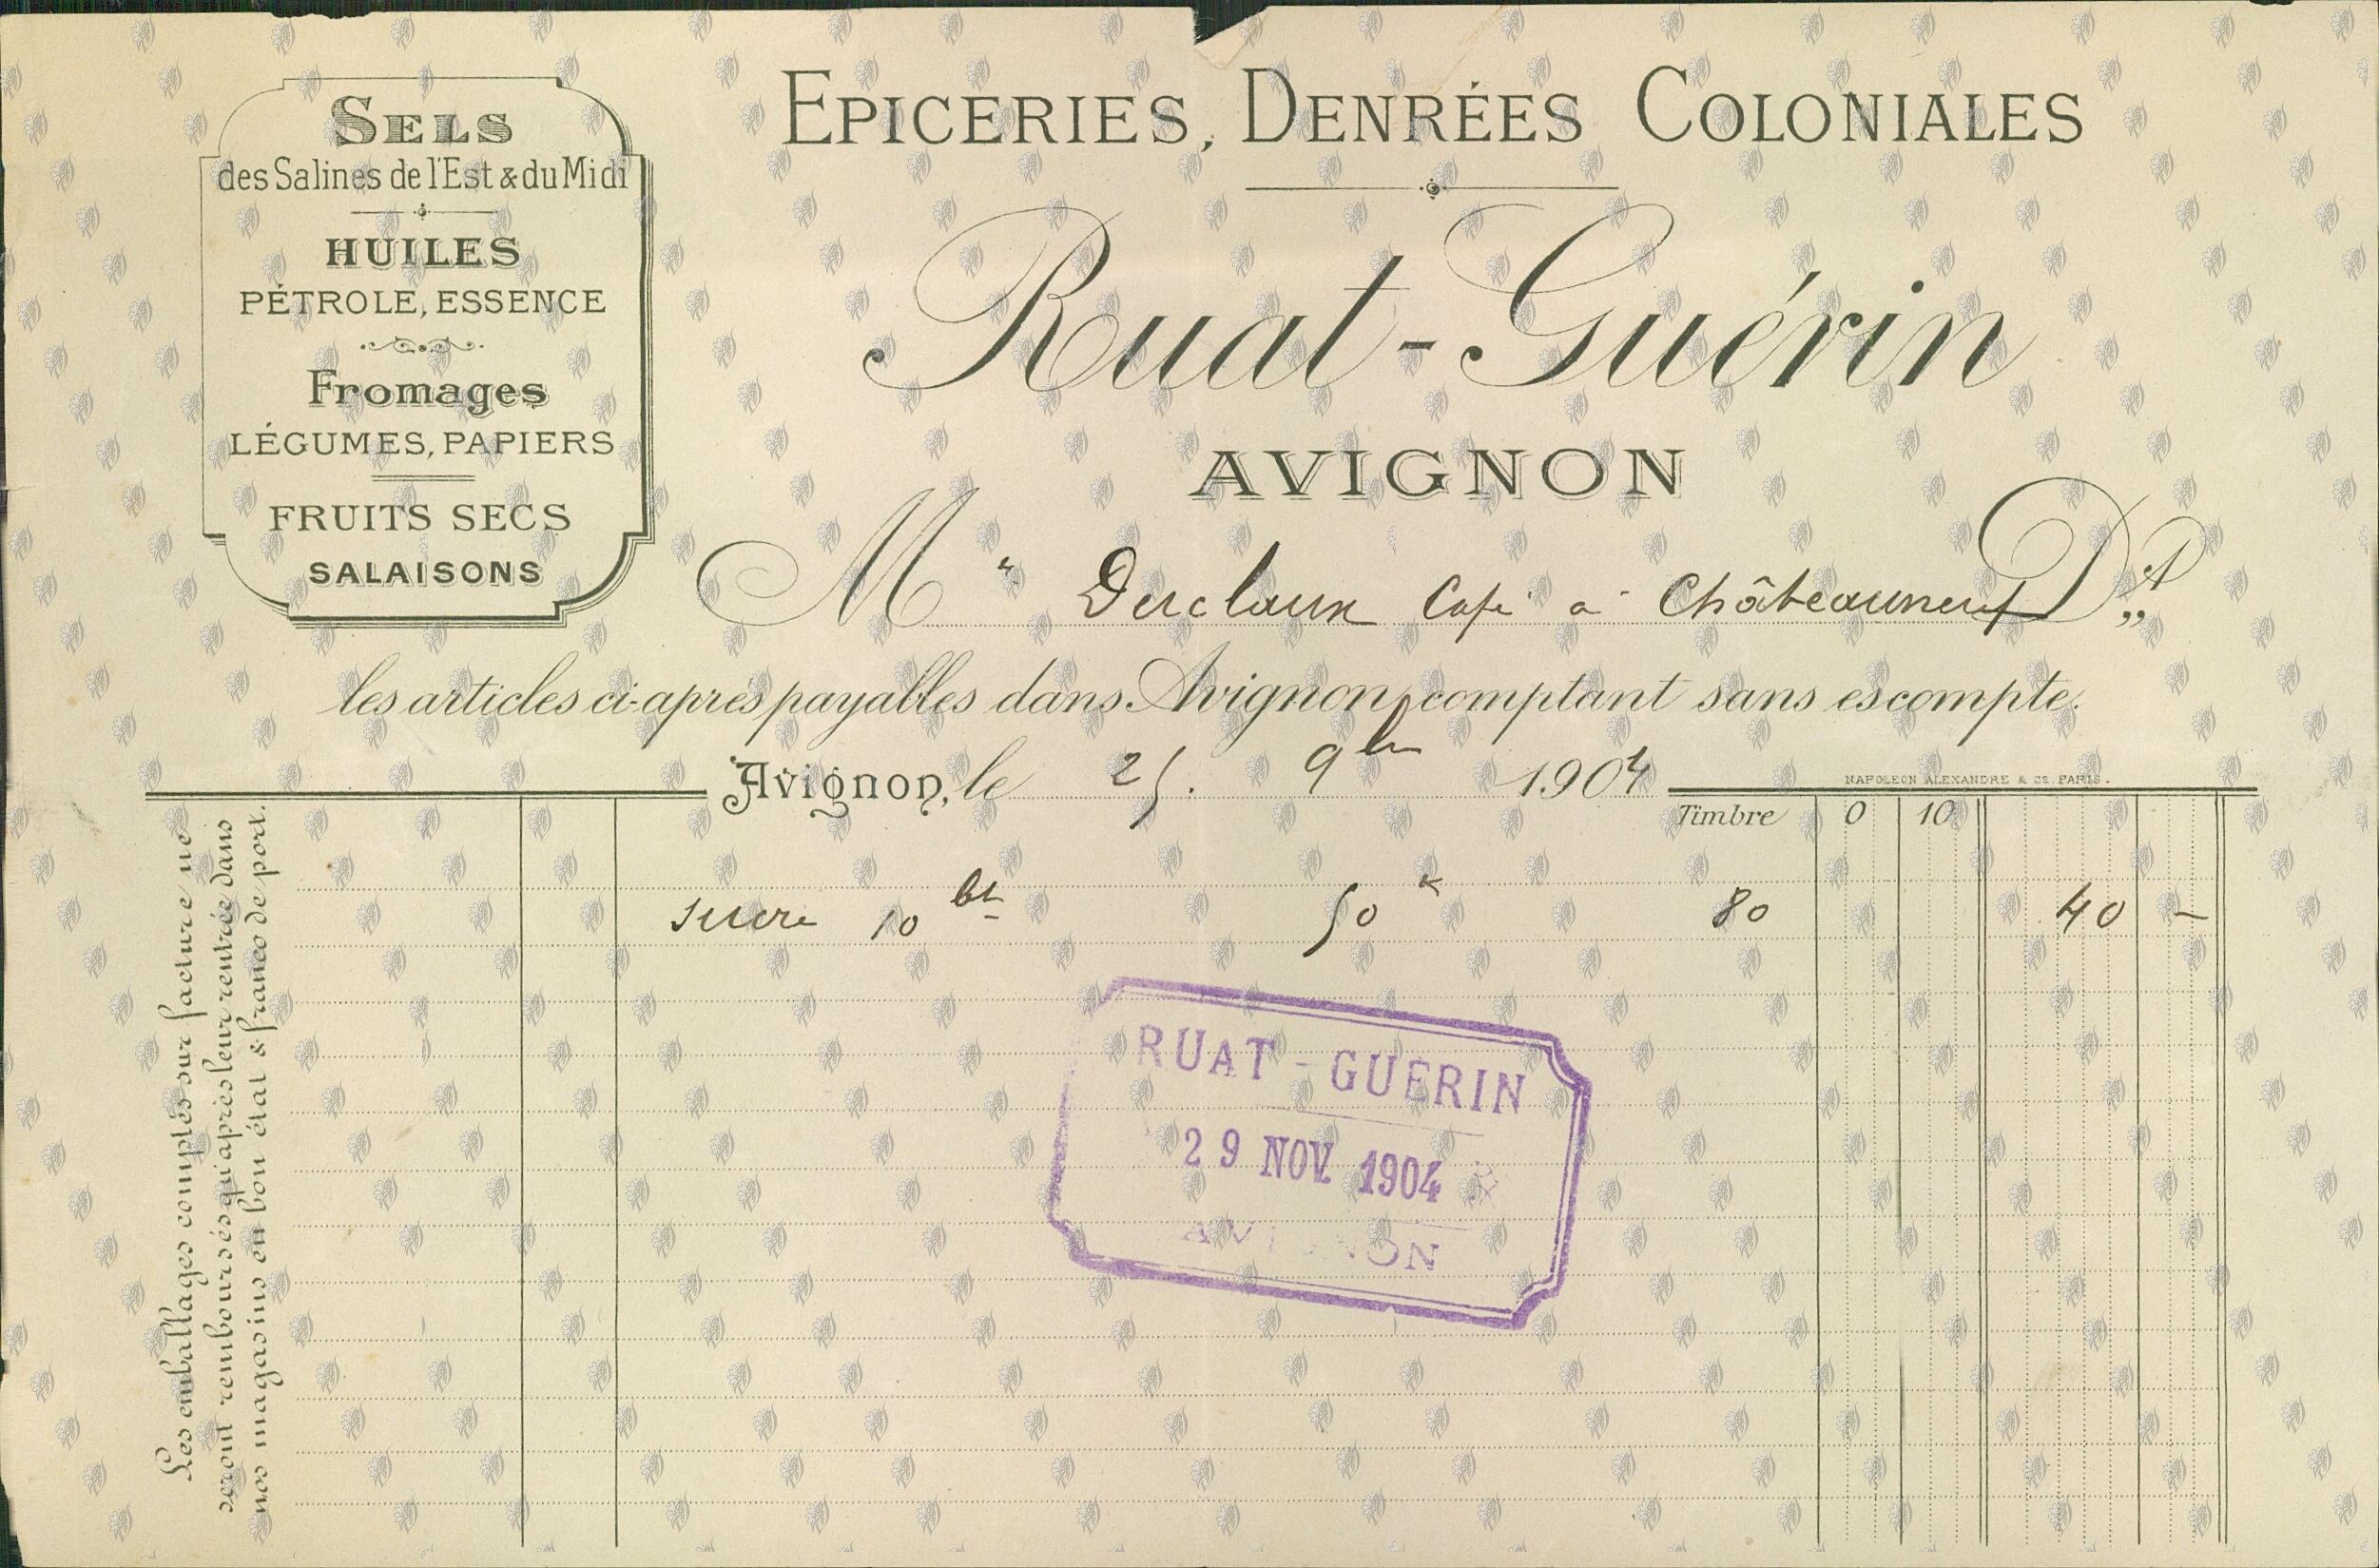 SELS
des Salines de l'Est & du Midi
HUILES
PÉTROLE, ESSENCE
Fromages
LÉGUMES, PAPIERS
FRUITS SECS
SALAISONS
EPICERIES, DENRÉES COLONIALES
Ruat-Guérin
AVIGNON
M Derclaux Café a Châteauneuf Dt
les articles ci-après payables dans Avignon, comptant sans escompte.
Avignon, le 25. 9bre 1904
NAPOLEON ALEXANDRE & Cie. PARIS.
Timbre 0 10
Sucre 10 bt 50 k 80 40 -
RUAT - GUERIN
29 NOV. 1904
AVIGNON
Les emballages comptés sur facture ne
seront remboursés qu'après leur rentrée dans
nos magasins en bon état & franco de port.